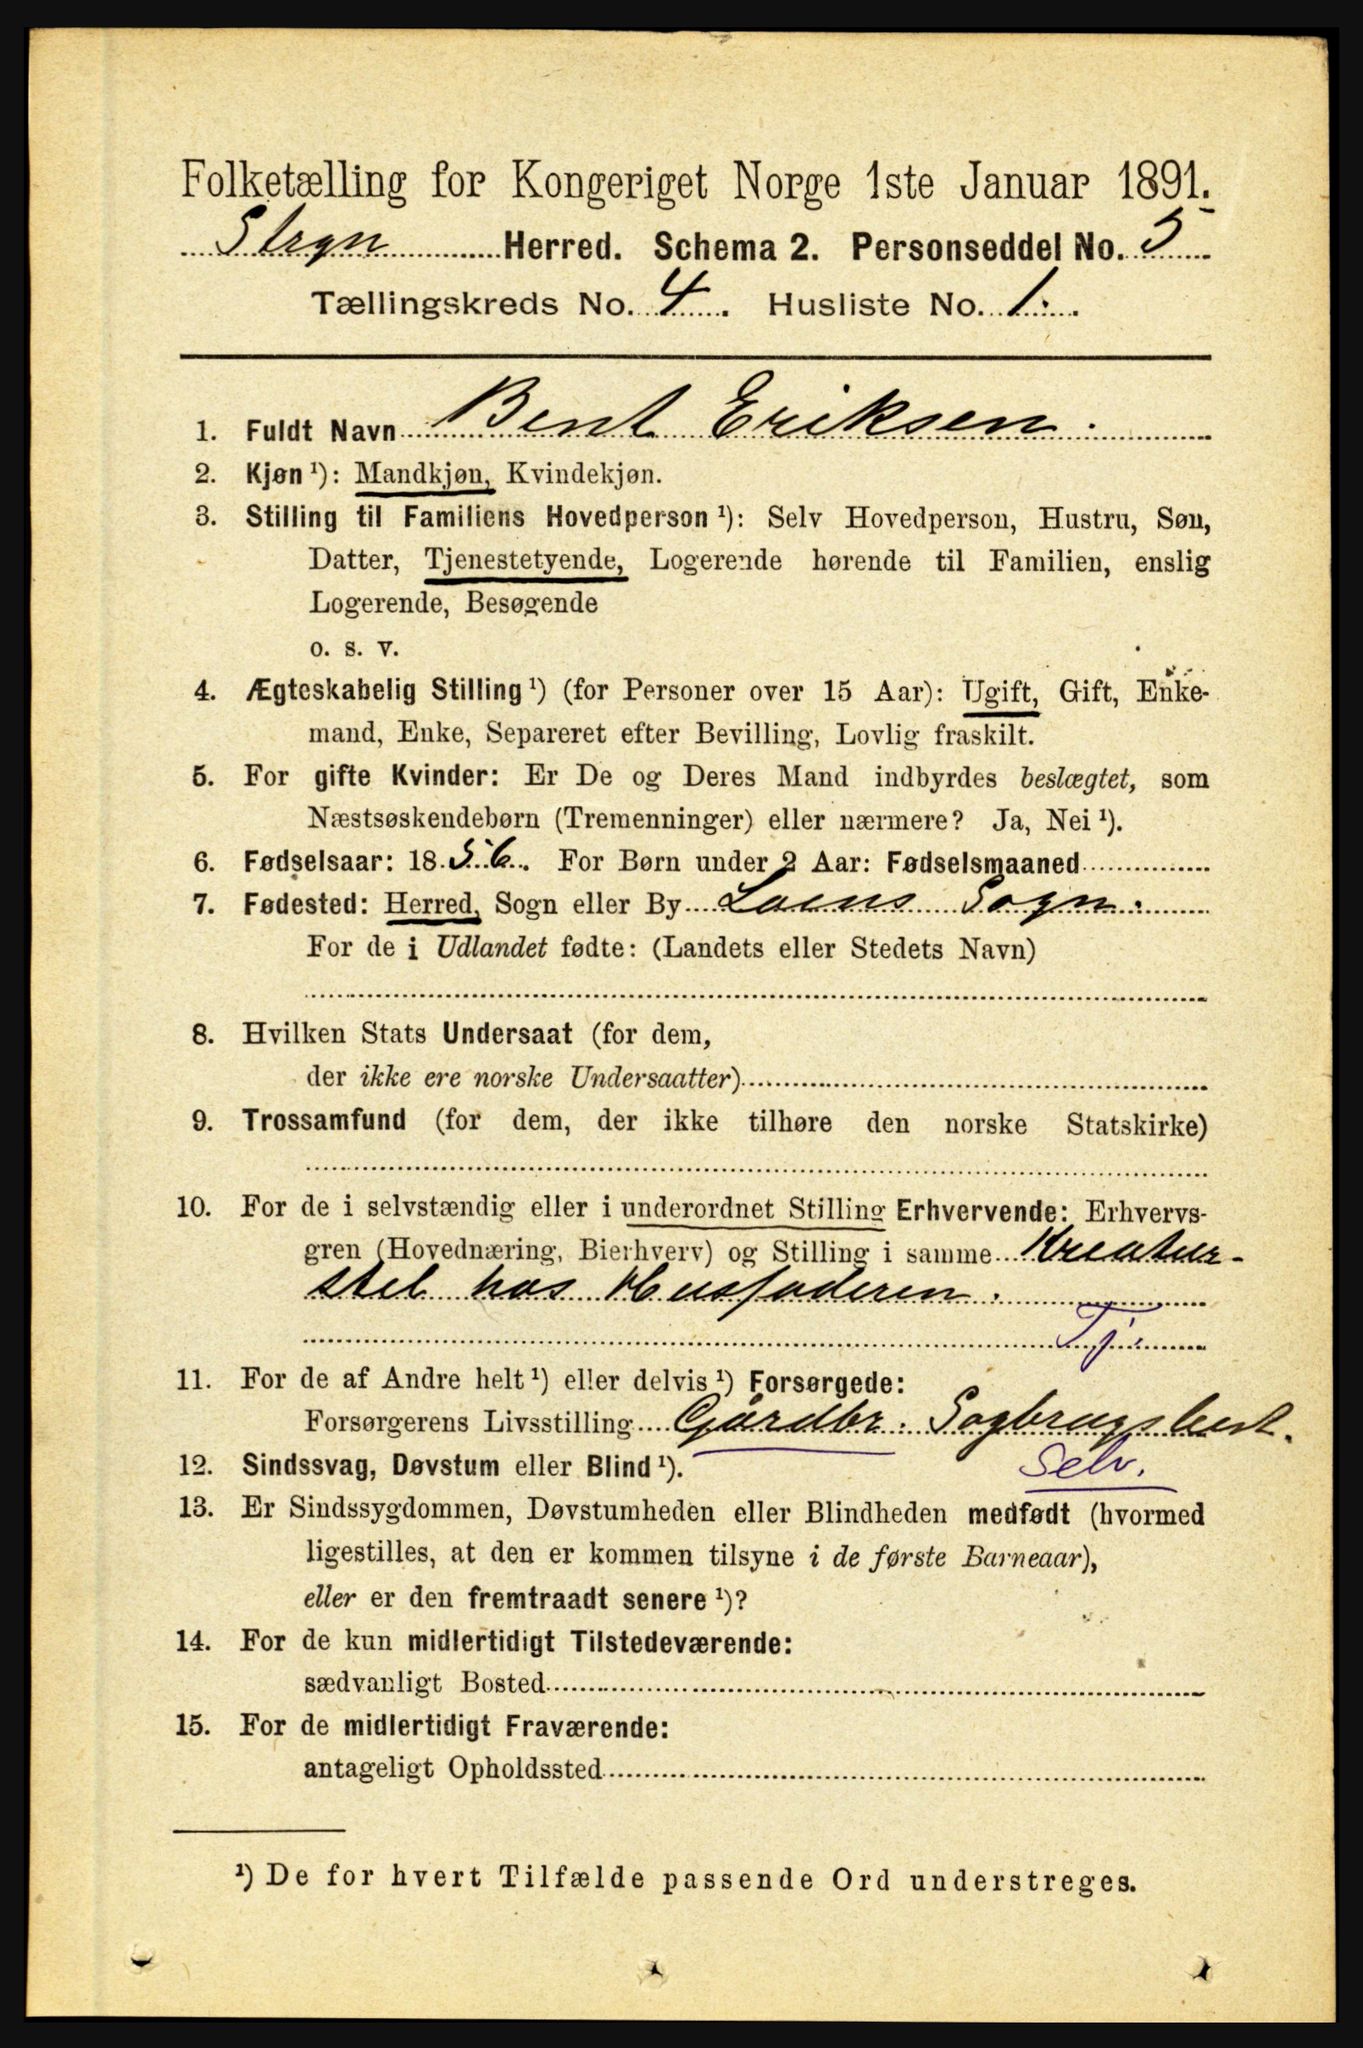 Folketælling for Kongeriget Norge 1ste Januar 1891.
Stryn Herred. Schema 2. Personseddel No. 5
Tællingskreds No. 4. Husliste No. 1.
1. Fuldt Navn Bent Eriksen.
2. Kjøn ¹): Mandkjøn, Kvindekjøn.
3. Stilling til Familiens Hovedperson ¹): Selv Hovedperson, Hustru, Søn,
Datter, Tjenestetyende, Logerende hørende til Familien, enslig
Logerende, Besøgende
o. s. v.
4. Ægteskabelig Stilling ¹) (for Personer over 15 Aar): Ugift, Gift, Enke-
mand, Enke, Separeret efter Bevilling, Lovlig fraskilt.
5. For gifte Kvinder: Er De og Deres Mand indbyrdes beslægtet, som
Næstsøskendebørn (Tremenninger) eller nærmere? Ja, Nei ¹).
6. Fødselsaar: 1856. For Børn under 2 Aar: Fødselsmaaned
7. Fødested: Herred, Sogn eller By Loens Sogn.
For de i Udlandet fødte: (Landets eller Stedets Navn)
8. Hvilken Stats Undersaat (for dem,
der ikke ere norske Undersaatter)
9. Trossamfund (for dem, der ikke tilhøre den norske Statskirke)
10. For de i selvstændig eller i underordnet Stilling Erhvervende: Erhvervs-
gren (Hovednæring, Bierhverv) og Stilling i samme Kreatur-
stel hos Husfaderen.
Tj.
11. For de af Andre helt ¹) eller delvis ¹) Forsørgede:
Forsørgerens Livsstilling Gårdbr. Sagbrugsbest.
12. Sindssvag, Døvstum eller Blind ¹). Selv.
13. Er Sindssygdommen, Døvstumheden eller Blindheden medfødt (hvormed
ligestilles, at den er kommen tilsyne i de første Barneaar),
eller er den fremtraadt senere ¹)?
14. For de kun midlertidigt Tilstedeværende:
sædvanligt Bosted
15. For de midlertidigt Fraværende:
antageligt Opholdssted
¹) De for hvert Tilfælde passende Ord understreges.